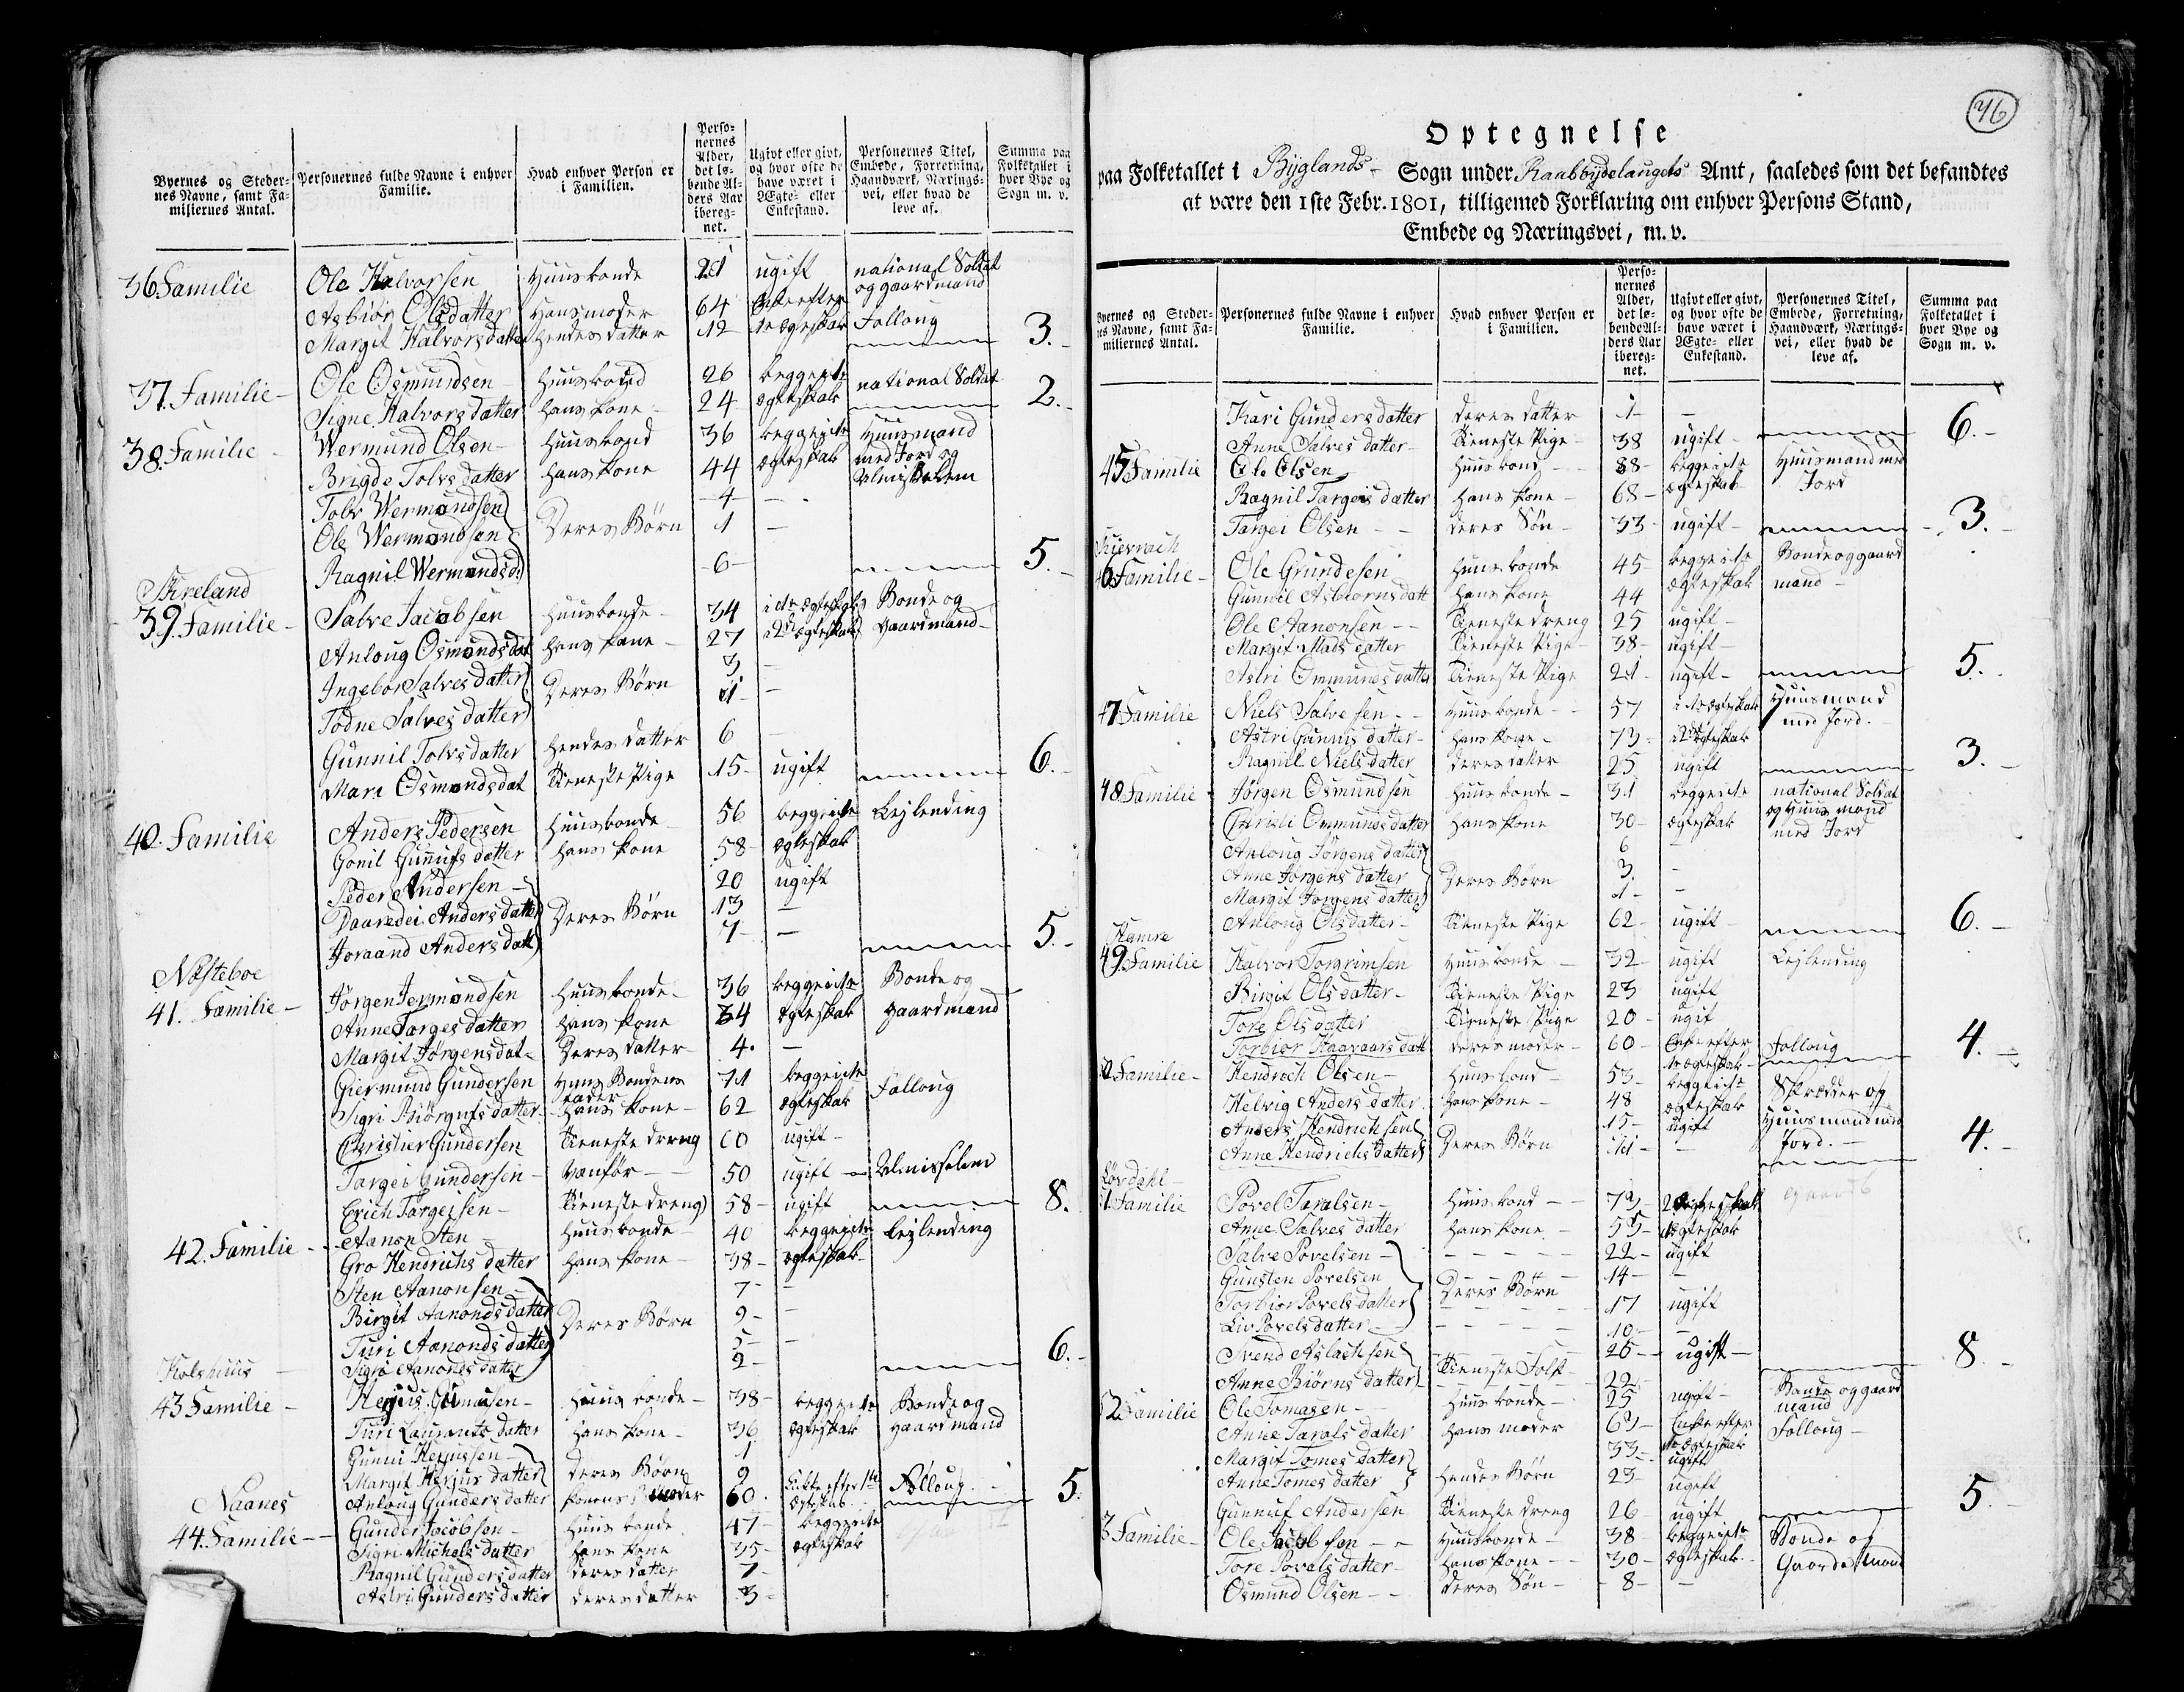 Byernes og Steder-
nes Navne, samt Fa-
miliernes Antal.
Personernes fulde Navne i enhver
Familie.
Hvad enhver Person er
i Familien.
Perso-
nernes
Alder,
det lø-
bende Al-
ders Aar
ibereg-
net.
Ugivt eller givt,
og hvor ofte de
have været i
Ægte- eller
Enkestand.
Personernes Titel,
Embede, Forretning,
Haandværk, Nærings-
vei, eller hvad de
leve af.
Summa paa
Folketallet i
hver Bye og
Sogn m. v.
36 Familie Ole Halvorsen Huusbonde 21 ugift national Soldat og gaardmand
Asbiör Olsdatter Hans moder 64 Enke efter
Margit Halvorsdatter Hendes datter 12 1te ægteskab Folloug 3.
37. Familie Ole Osmundsen Huusbond 26 begge i 1te national Soldat
Signe Halvorsdatter Hans kone 24 ægteskab 2.
38. Familie Wermund Olsen Huusbond 36 begge i 1te Huusmand
Brigde Tolvsdatter Hans kone 44 ægteskab med Jord og
Tolv Wermundsen 4
Ole Wermundsen Deres Börn 1
Ragnil Wermundsd 6 5.
Skreland
39. Familie Salve Jacobsen Huusbonde 34 i 1te ægteskab Bonde og
Anloug Osmundsdat Hans kone 27 i 2det ægteskab gaardmand
Ingebor Salvesdatter 3
Todne Salvesdatter Deres Börn 1
Gunnil Tolvsdatter Hendes datter 6
Mari Osmundsdat Tieneste Pige 15 ugift 6.
40. Familie Anders Pedersen Huusbonde 56 begge i 1te Lejlending
Gonil Gunnufsdatter Hans kone 58 ægteskab
Peder Andersen 20 ugift
Daaredei Andersdatter Deres Börn 13
Joraand Andersdatt 7 5.
Næsteboe
41. Familie Jörgen Jermundsen Huusbonde 36 begge i 1te Bonde og
Anne Targesdatter Hans kone 34 ægteskab gaardmand
Margit Jörgensdat Deres datter 4
Giermund Gundersen Huus Bondens fader 71 begge i 1te Folloug
Sigri Biörgufsdatter Hans kone 62 ægteskab
Christier Gundersen Tieneste dreng 60 ugift
Targei Gundersen vanför 50 ugift Almisselem
Erich Targeisen Tieneste dreng 58 ugift 8.
42. Familie Aanon Sten Huusbonde 40 begge i 1te Lejlending
Gro Hendrichsdatter Hans kone 38 ægteskab
Sten Aanonsen 7
Birgit Aanondsdatter Deres Börn 9
Turi Aanondsdatter 5
Sigri Aanondsdatter 2 6.
Kolshuus
43 Familie Herjus Gunnusen Huusbonde 38 begge i 1te Bonde og
Turi Lauruntsdatter Hans kone 36 ægteskab gaardmand
Gunni Herjussen 1
Margit Herjusdatter Deres Börn 9
Anlaug Gundersdatter konens Moder 60 Enke efter 1te Ægteskab Folloug 5.
Naanes
44. Familie Gunder Jocobsen Huusbonde 47 begge i 1te
Sigri Michelsdatter Hans kone 35 ægteskab
Ragnil Gundersdatter deres datter 7
Astri Gundersdatter deres datter 3
46
Optegnelse
paa Folketallet i Byglands Sogn under Raabbydelaugets Amt, saaledes som det befandtes
at være den 1ste Febr. 1801, tilligemed Forklaring om enhver Persons Stand,
Embede og Næringsvei, m. v.
Byernes og Steder-
nes Navne, samt Fa-
miliernes Antal.
Personernes fulde Navne i enhver
Familie.
Hvad enhver Person er
i Familien.
Perso-
nernes
Alder,
det lø-
bende Al-
ders Aar
ibereg-
net.
Ugivt eller givt,
og hvor ofte de
have været i
Ægte- eller
Enkestand.
Personernes Titel,
Embede, Forretning,
Haandværk, Nærings-
vei, eller hvad de
leve af.
Summa paa
Folketallet i
hver Bye og
Sogn m. v.
Kari Gundersdatter deres datter 1
Anne Salvesdatter Tieneste Pige 38 ugift 6.
45 Familie Ole Olsen Huusbond 88 begge i 1te Huusmand med
Ragnil Targeisdatter Hans kone 68 ægteskab Jord
Targei Olsen deres Sön 33 ugift 3.
46 Familie Ole Grundesen Huusbonde 45 begge i 1te Bonde og gaard
Gunnil Asbiornsdatt Hans kone 44 ægteskab mand
Ole Aanonsen Tieneste dreng 25 ugift
Margit Madsdatter Tieneste Pige 38 ugift
Astri Ommundsdatter Tieneste Pige 21 ugift 5.
47 Familie Niels Salvesen Huusbonde 57 i 1te ægteskab Huusmand
Astri Gunnisdatter Hans kone 73 i 2det ægteskab med Jord.
Ragnil Nielsdatter deres datter 25 ugift 3.
48 Familie Jörgen Osmundsen Huusbonde 31 begge i 1te national Soldat
Christi Ommundsdatter Hans kone 30 ægteskab og Huusmand med Jord
Anloug Jörgensdatter 6
Anne Jörgensdatter Deres Börn 3
Margit Jörgensdatter 1
Anloug Olsdatter Tieneste Pige 62 ugift 6.
Hamre
49. Familie Halvor Torgrimsen Huusbonde 32 ugift Lejlending
Birgit Olsdatter Tieneste Pige 23 ugift
Tore Olsdatter Tieneste Pige 20 ugift
Torbiör Haavaarsdatt deres moder 60 Enke efter 1te ægteskab Folloug 4.
Familie Hendrich Olsen Huusbond 53 begge i 1te Skredder og
Helvig Andersdatter Hans kone 48 ægteskab Huusmand med
Anders Hendrichsen 15 ugift Jord.
Anne Hendrichsdatter Deres Börn 11 4.
Lövdahl
51 Familie Povel Taralsen Huusbond 73 2 ægteskab
Anne Salvesdatter Hans kone 55 1 ægteskab
Salve Povelsen 22 ugift
Gunsten Povelsen Deres Börn 14
Torbior Povelsdatter 17 ugift
Liv Povelsdatter 10
Svend Aslachsen 26 ugift
Anne Biörnsdatter Tieneste Folk 22 8.
52 Familie Ole Tomasen Huusbonde 25 ugift Bonde og gaard mand
Anne Taralsdatter Hans moder 63 Enke efter 1te ægteskab Folloug
Margit Tomesdatter 33 ugift
Anne Tomesdatter Hendes Börn 23 ugift
Gunnuf Andersen Tieneste dreng 26 ugift 5.
3 Familie Ole Jacobsen Huusbonde 38 begge i 1te Bonde og
Tore Povalsdatter Hans kone 30 ægteskab Gaardmand
Osmund Olsen deres Sön 8